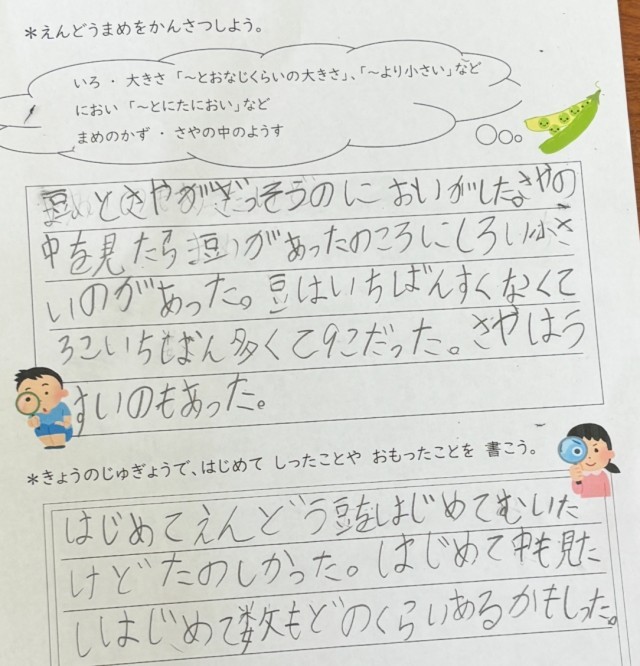 ＊えんどうまめをかんさつしよう。
いろ・大きさ「～とおなじくらいの大きさ」、「～より小さい」など
におい「～とにたにおい」など
まめのかず・さやの中のようす
豆とさやがざっそうのにおいがした。さやの
中を見たら豆があったのころにしろい小さ
いのがあった。豆はいちばんすくなくて
ろこいちばん多くて9こだった。さやはう
すいのもあった。
＊きょうのじゅぎょうで、はじめて しったことや おもったことを 書こう。
はじめてえんどう豆をはじめてむいた
けどたのしかった。はじめて中も見た
しはじめて数もどのくらいあるかもしった。